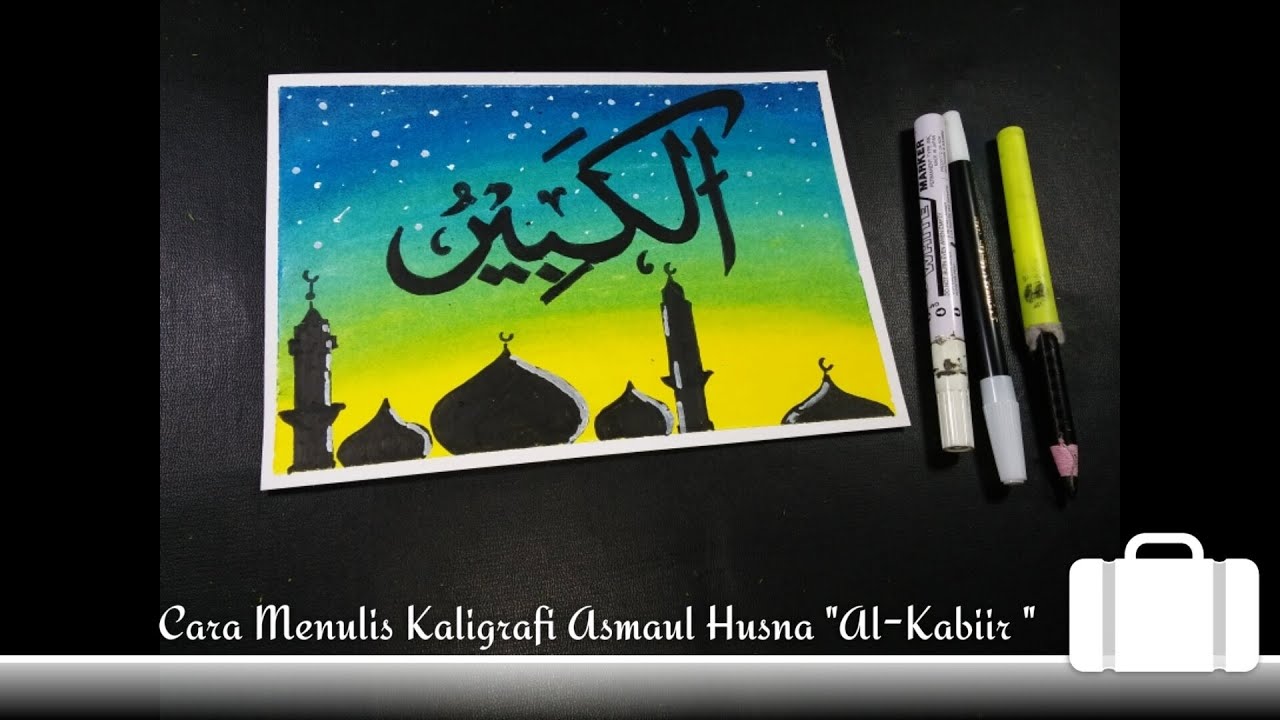 الكَبِيْرُ
WHITE MARKER
Cara Menulis Kaligrafi Asmaul Husna "Al-Kabiir "